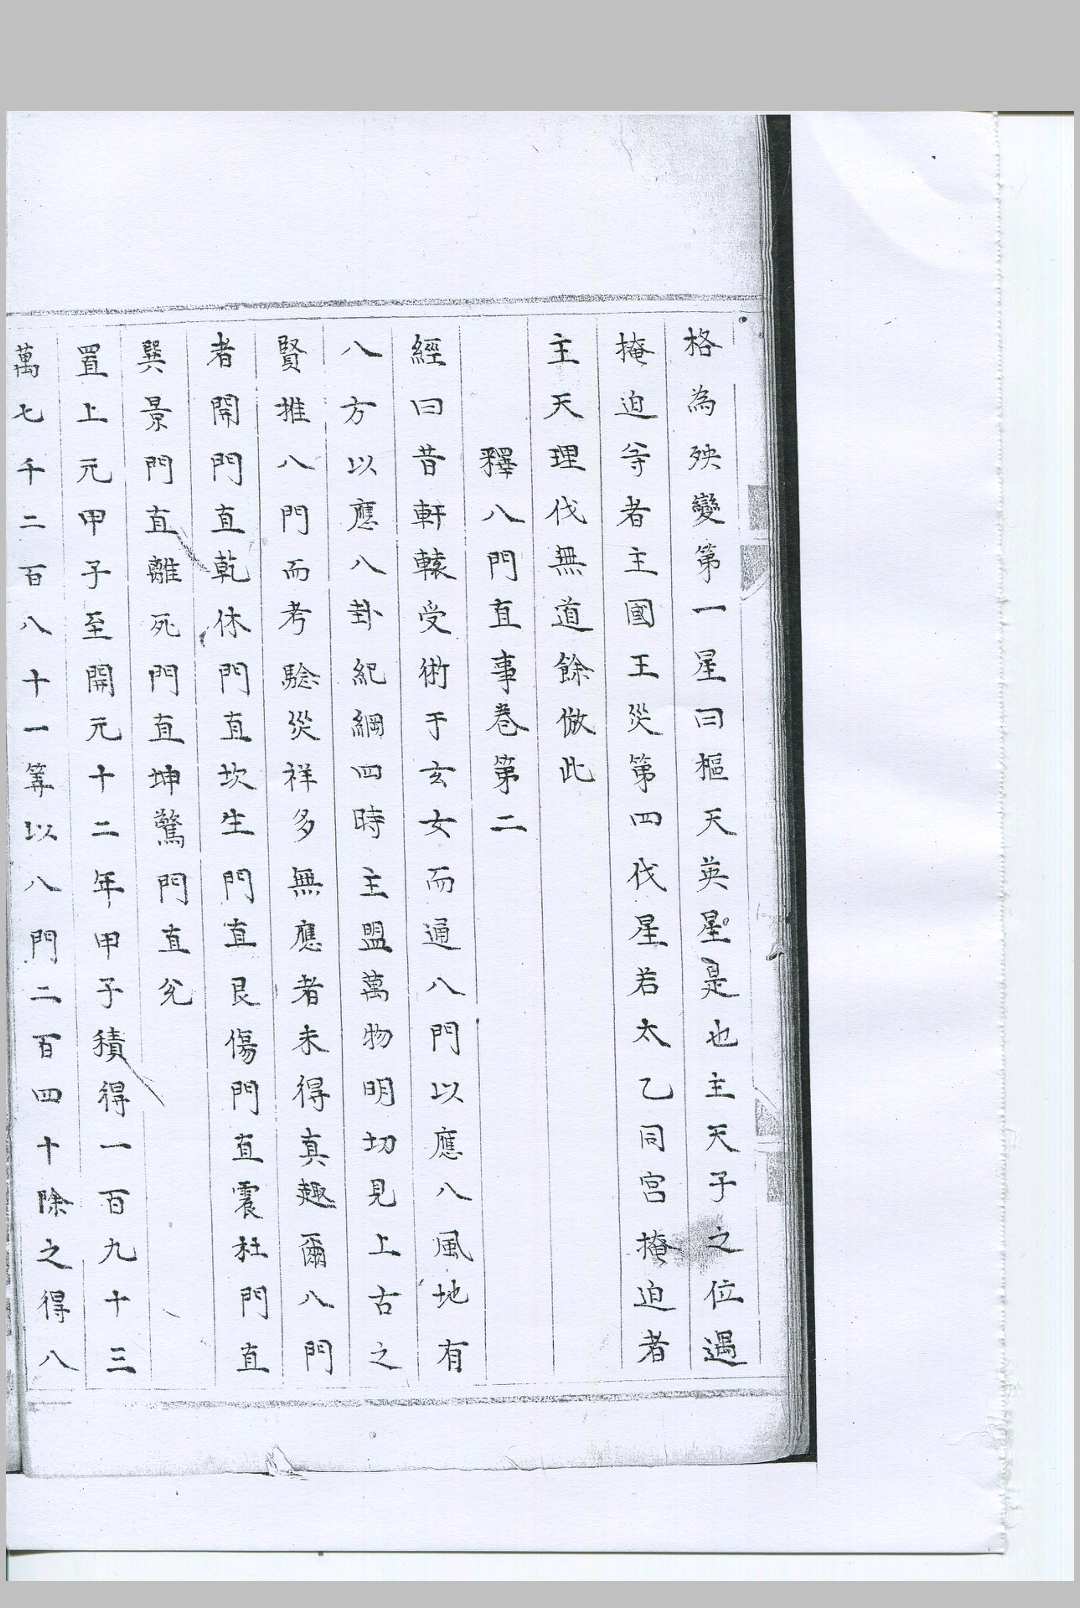 格為殃變第一星曰樞天英星是也主天子之位遇
掩迫等者主國王災第四伐星若太乙同宮掩迫者
主天理伐無道餘倣此
釋八門直事卷第二
經曰昔軒轅受術于玄女而通八門以應八風地有
八方以應八卦紀綱四時主盟萬物明切見上古之
賢推八門而考驗災祥多無應者未得真趣爾八門
者開門直乾休門直坎生門直艮傷門直震杜門直
巽景門直離死門直坤驚門直兌
置上元甲子至開元十二年甲子積得一百九十三
萬七千二百八十一筭以八門二百四十除之得八